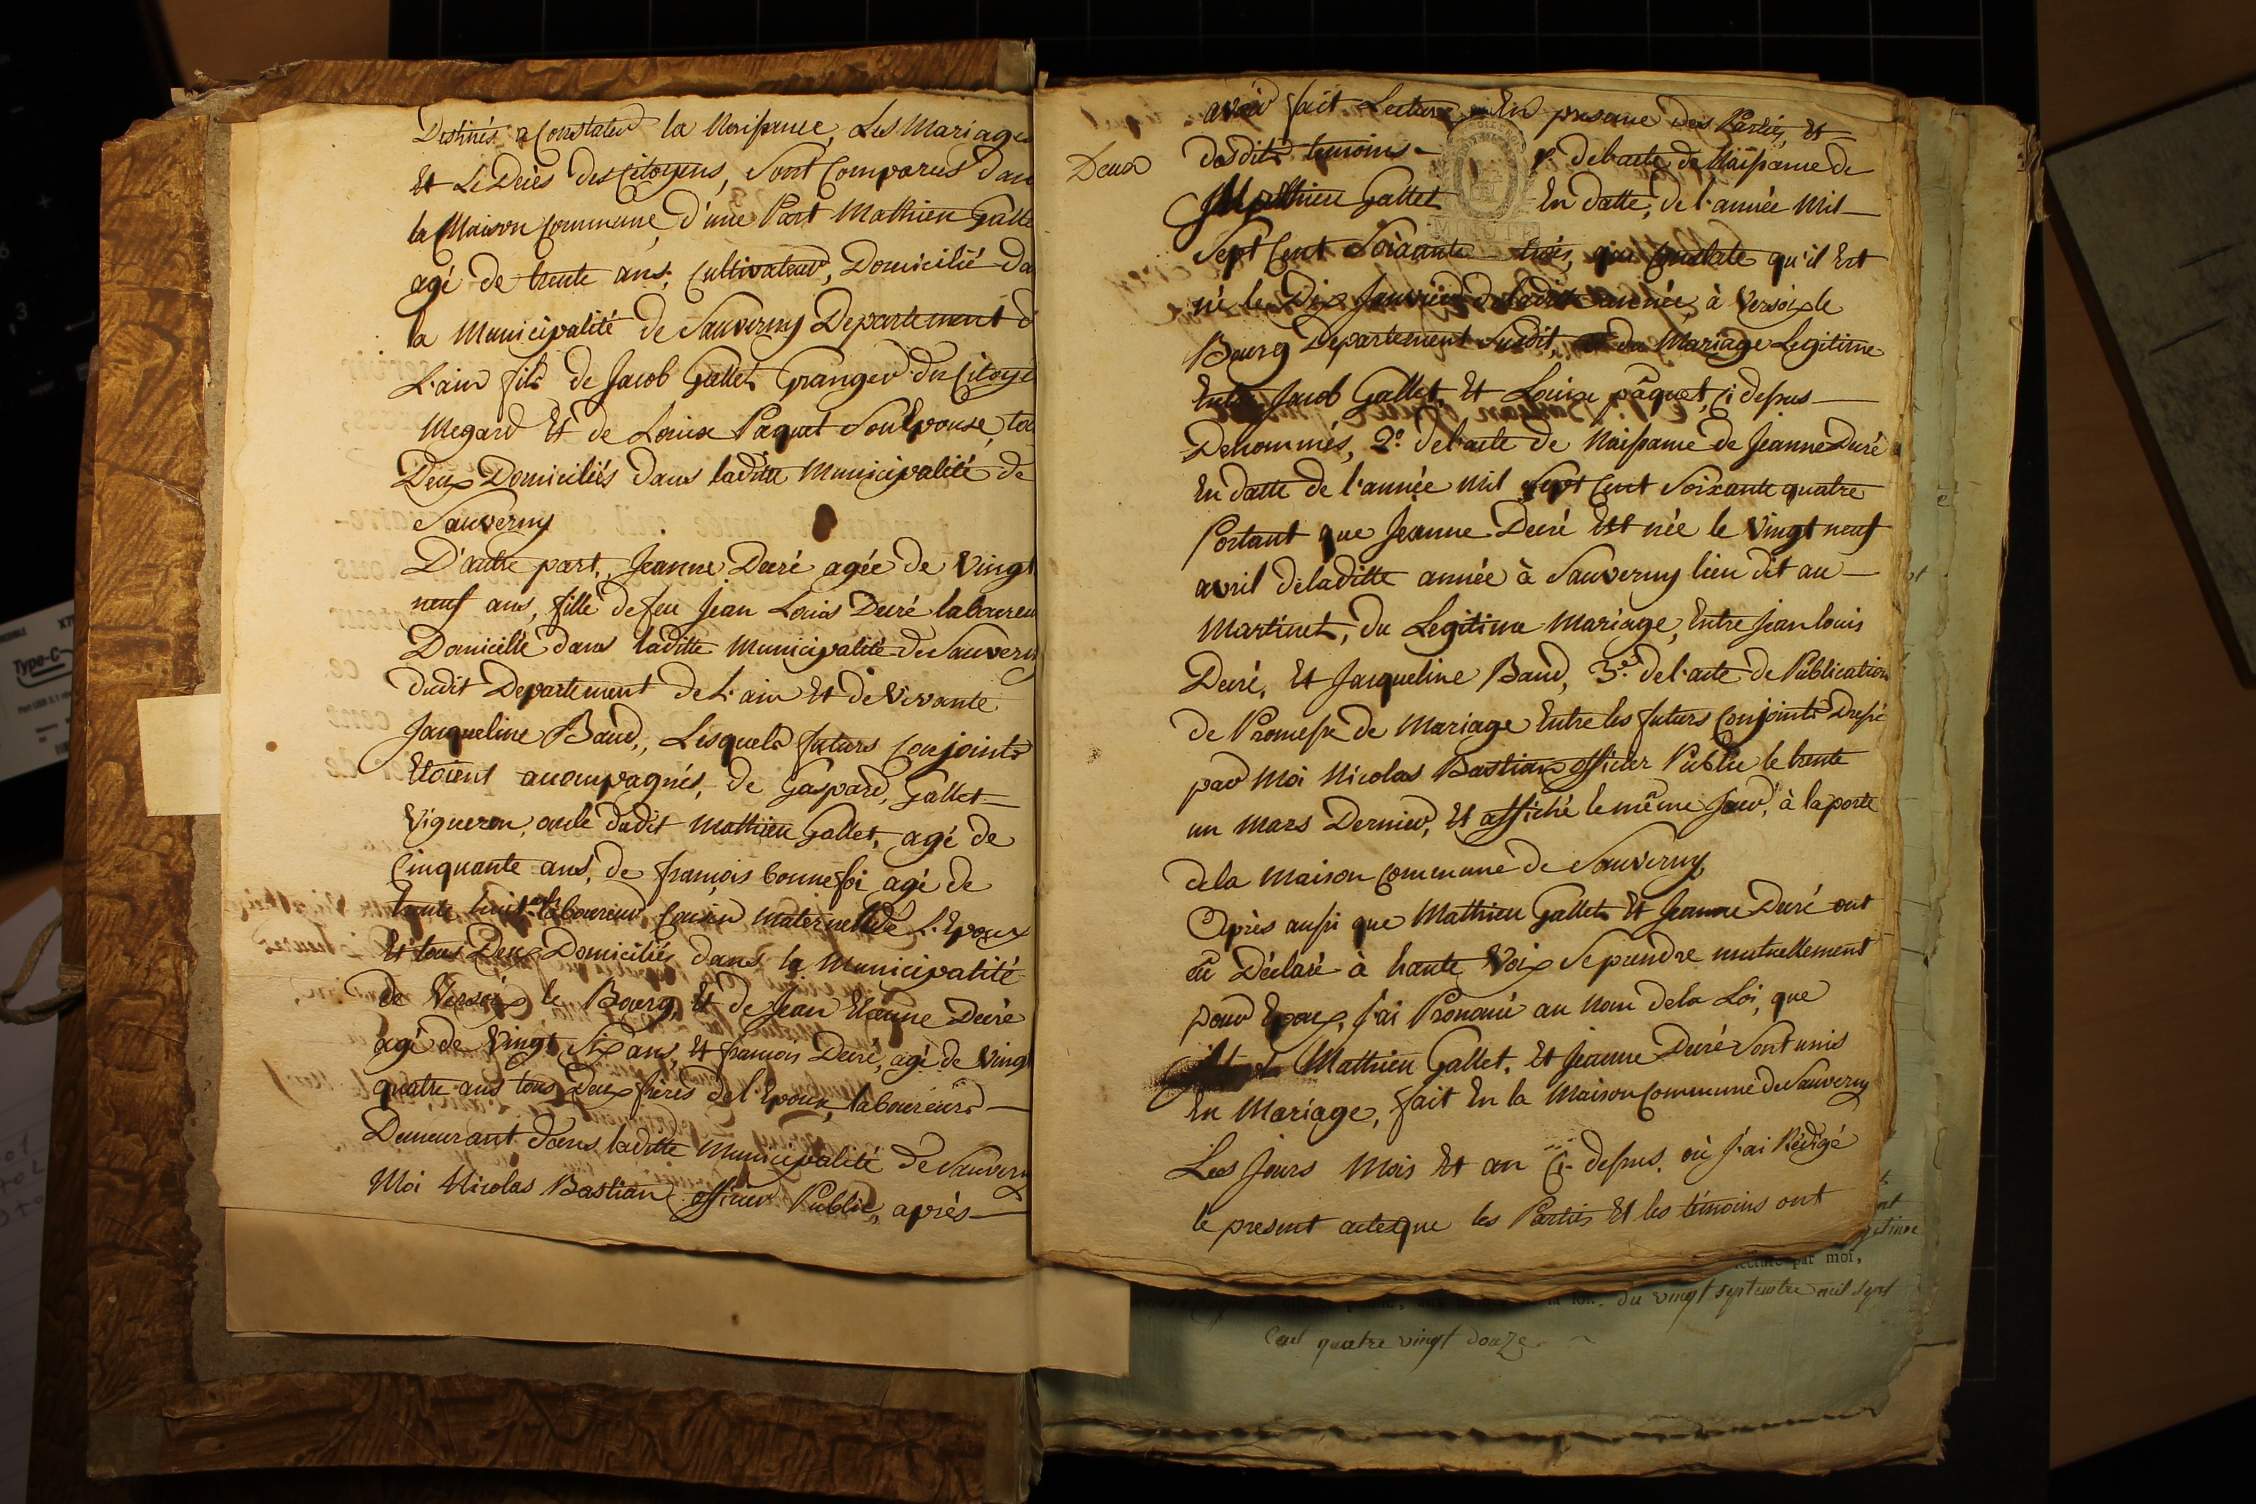 Destinés a Constater la Naissance, Les Mariages
Et Le Décès des Citoyens, Sont Comparus dan
la Maison Commune, d'une Part Mathieu Galle
agé de trente ans, Cultivateur, Domicilié da
la Municipalité de Sauverny Departement d
L'ain fils de Jacob Gallet Granger du Citoye
Megard Et de Louise Paquet Son Epouse, to
Deux Domiciliés dans laditte Municipalité de
Sauverny
D'autre part, Jeanne Duré agée de Vingt
neuf ans, fille de feu Jean Louis Duré laboureu
Domicilié dans laditte Municipalité de Sauvern
dudit Departement de L'ain Et de Vivante
Jaqueline Baud, Lesquels futurs Conjoints
Etoient accompagnés, de Gaspard, Gallet
Vigneron, oncle dudit Mathieu Gallet, agé de
Cinquante ans, de françois bonnefoi agé de
trente huit ans laboureur Cousin maternel de L'Epoux
Et tous Deux Domiciliés dans la Municipalité
de Versoix le Bourg, Et de Jean Etienne Duré
agé de Vingt Six ans, Et françois Duré, agé de Vingt
quatre ans tous Deux frères de l'Epoux, laboureurs
Demeurant dans laditte Municipalité de Sauverny
Moi Nicolas Bastian officier Public, après
Deux
avoir fait Lecture En presence des Parties, Et
desdits temoins 1° de l'acte de Naissance de
Mathieu Gallet En datte, de l'année Mil
Sept Cent Soixante trois, qui Constate qu'il Est
né le Dix Janvier de laditte année, à Versoix le
Bourg Departement Susdit, du Mariage Legitime
Entre Jacob Gallet, Et Louise pâquet, Ci dessus
Dénommés, 2° de l'acte de Naissance de Jeanne Duré
En datte de l'année Mil Sept Cent Soixante quatre
Portant que Jeanne Duré Est née le Vingt neuf
avril de laditte année à Sauverny lieu dit au
Martinet, du Legitime Mariage, Entre Jean louis
Duré, Et Jacqueline Baud, 3° de l'acte de Publication
de Promesse de Mariage Entre les futurs Conjoints Dressé
par Moi Nicolas Bastian officier Public le trente
un Mars Dernier, Et affiché le même Jour, à la porte
de la Maison Commune de Sauverny
Après aussi que Mathieu Gallet Et Jeanne Duré ont
eû Déclaré à haute Voix Se prendre mutuellement
pour Epoux, J'ai Prononcé au Nom de la Loi, que
Mathieu Gallet, Et Jeanne Duré Sont unis
En Mariage, fait En la Maison Commune de Sauverny
Les Jours Mois Et an Ci-dessus, où J'ai Rédigé
le present acte que les Parties Et les témoins ont
lecture par moi,
la loi. du vingt septembre mil sept
Cent quatre vingt douze
Type-C